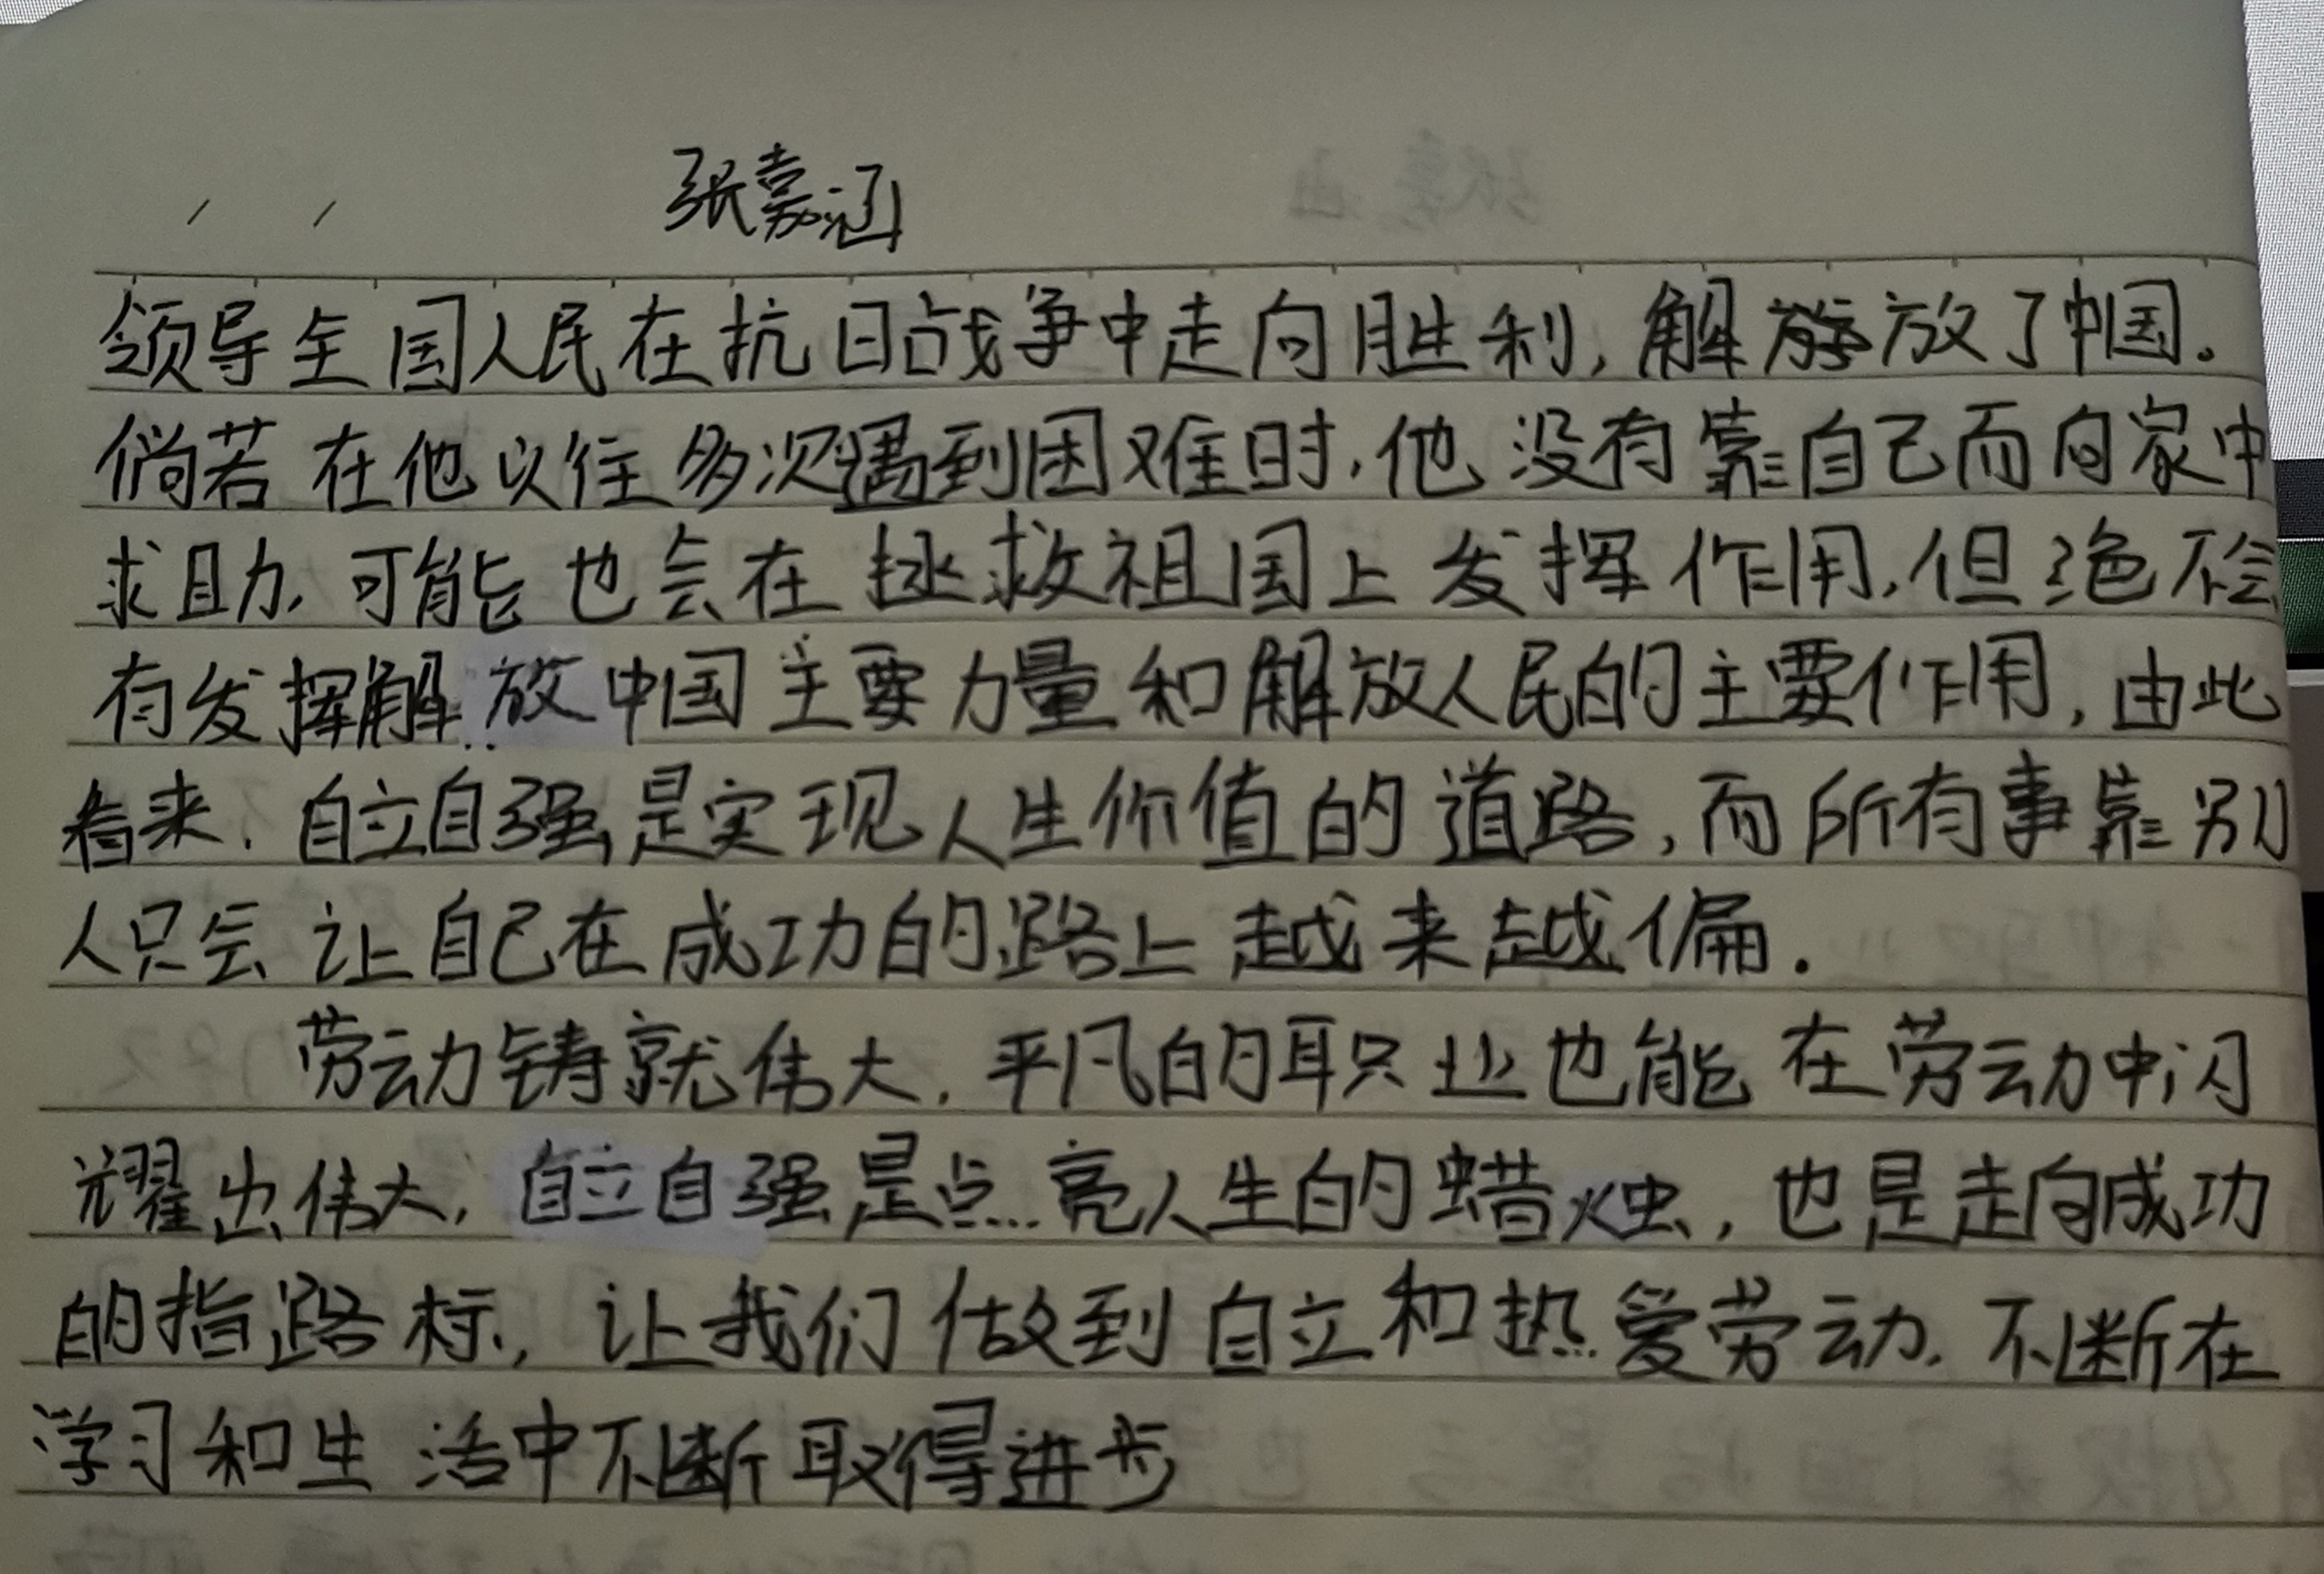 张嘉涵
领导全国人民在抗日战争中走向胜利,解放了中国。
倘若在他以往多次遇到困难时,他没有靠自己而向家中
求助,可能也会在拯救祖国上发挥作用,但绝不会
有发挥解放中国主要力量和解放人民的主要作用,由此
看来,自立自强是实现人生价值的道路,而所有事靠别
人只会让自己在成功的路上越来越偏.
劳动铸就伟大,平凡的职业也能在劳动中闪
耀出伟大,自立自强是点亮人生的蜡烛,也是走向成功
的指路标,让我们做到自立和热爱劳动,不断在
学习和生活中不断取得进步